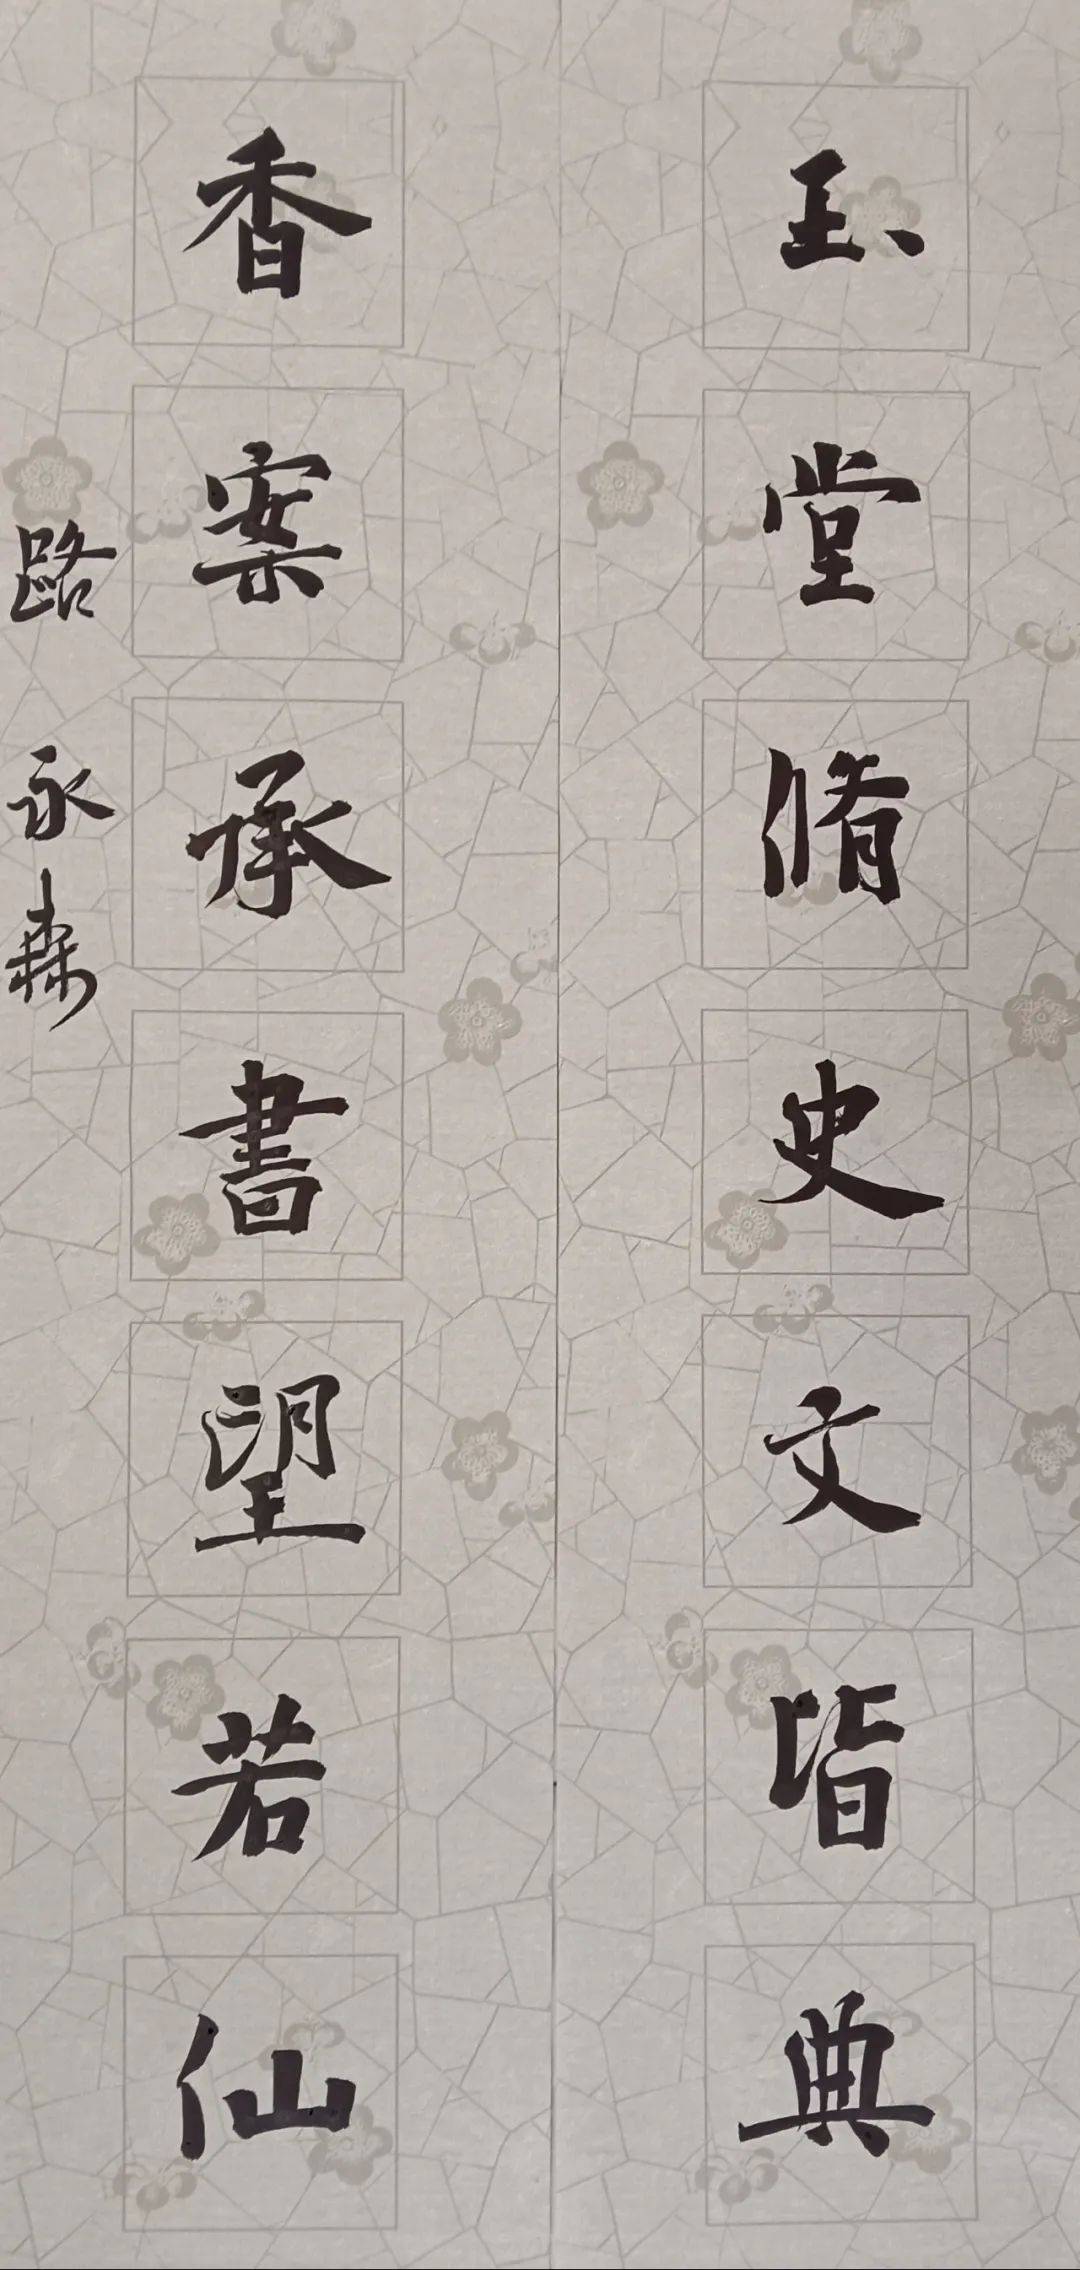 玉堂脩史文皆典
香案承書望若仙
路永森